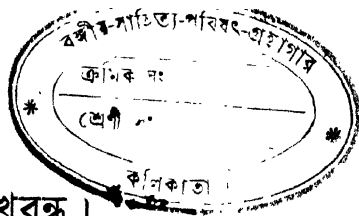 বঙ্গীয়-সাহিত্য-পরিষৎ-গ্রন্থাগার
ক্রমিক নং
শ্রেণী নং
কলিকাতা
খবন্ধ ।